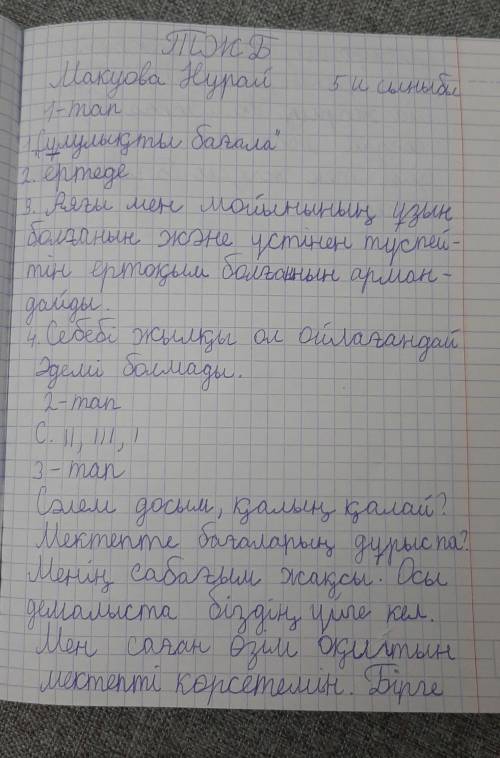 ТЖБ
Макуова Нурай 5 и сыныбы
1-тап
1. "Сұлулықты бағала"
2. ертеде
3. Аяғы мен мойынының ұзын
болғанын және үстінен түспей-
тін ертоқым болғанын арман-
дайды.
4. Себебі жылқы ол ойлағандай
әдемі болмады.
2-тап
С. II, III, I
3-тап
Сәлем досым, қалың қалай?
Мектепте бағаларың дұрыс па?
Менің сабағым жақсы. Осы
демалыста біздің үйге кел.
Мен саған өзім оқитын
мектепті көрсетемін. Бірге